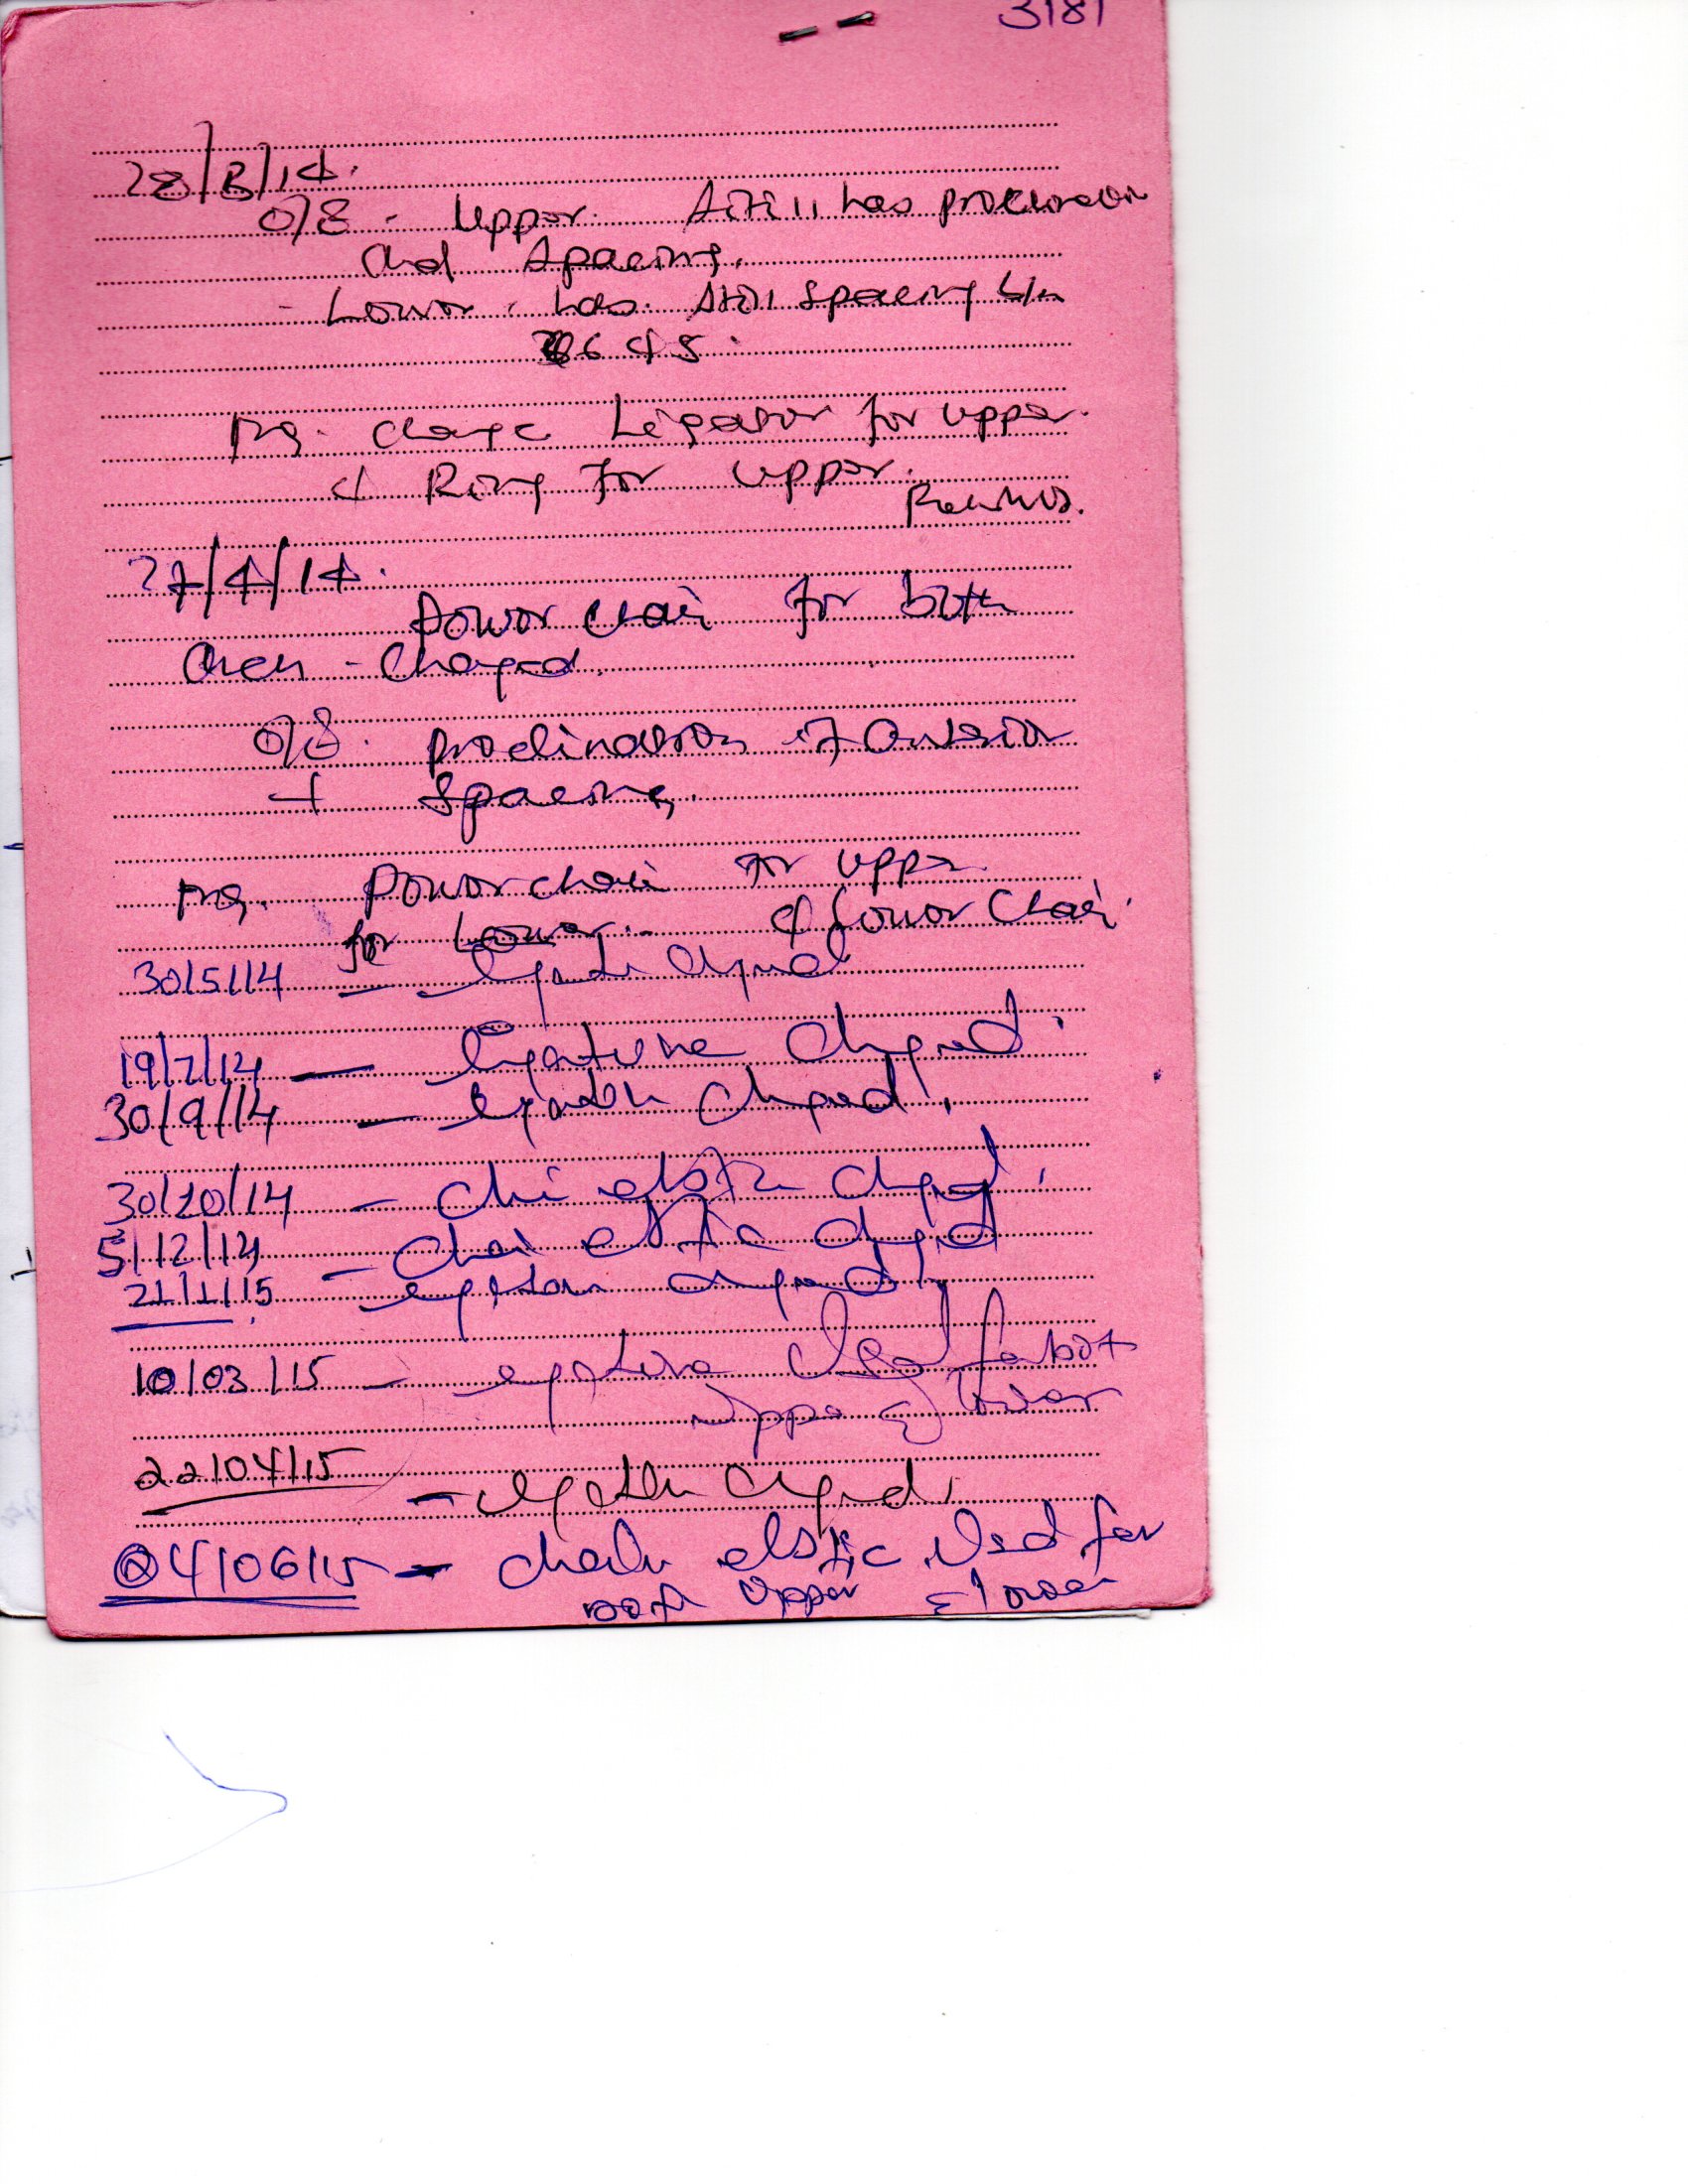 3181
28/3/14.
O/E - Upper. still has proclination
and spacing.
- Lower. has. still spacing b/n
6 & 5.
Mg. change Ligature for upper.
& Ring for upper.
27/4/14.
Power chain for both
Arch - Changed.
O/E. proclination of anterior
+ spacing.
Mg. Powerchain for upper
for Lower. & Lower chain.
30/5/14 - ligature changed
19/7/14 - ligature changed.
30/9/14 - ligature changed.
30/10/14 - chain elastic changed.
5/12/14 - chain elastic changed
21/1/15 - ligature changed
10/03/15 - ligature used for both
upper & lower
22/04/15 - ligature changed.
04/06/15 - chain elastic used for
both upper & lower